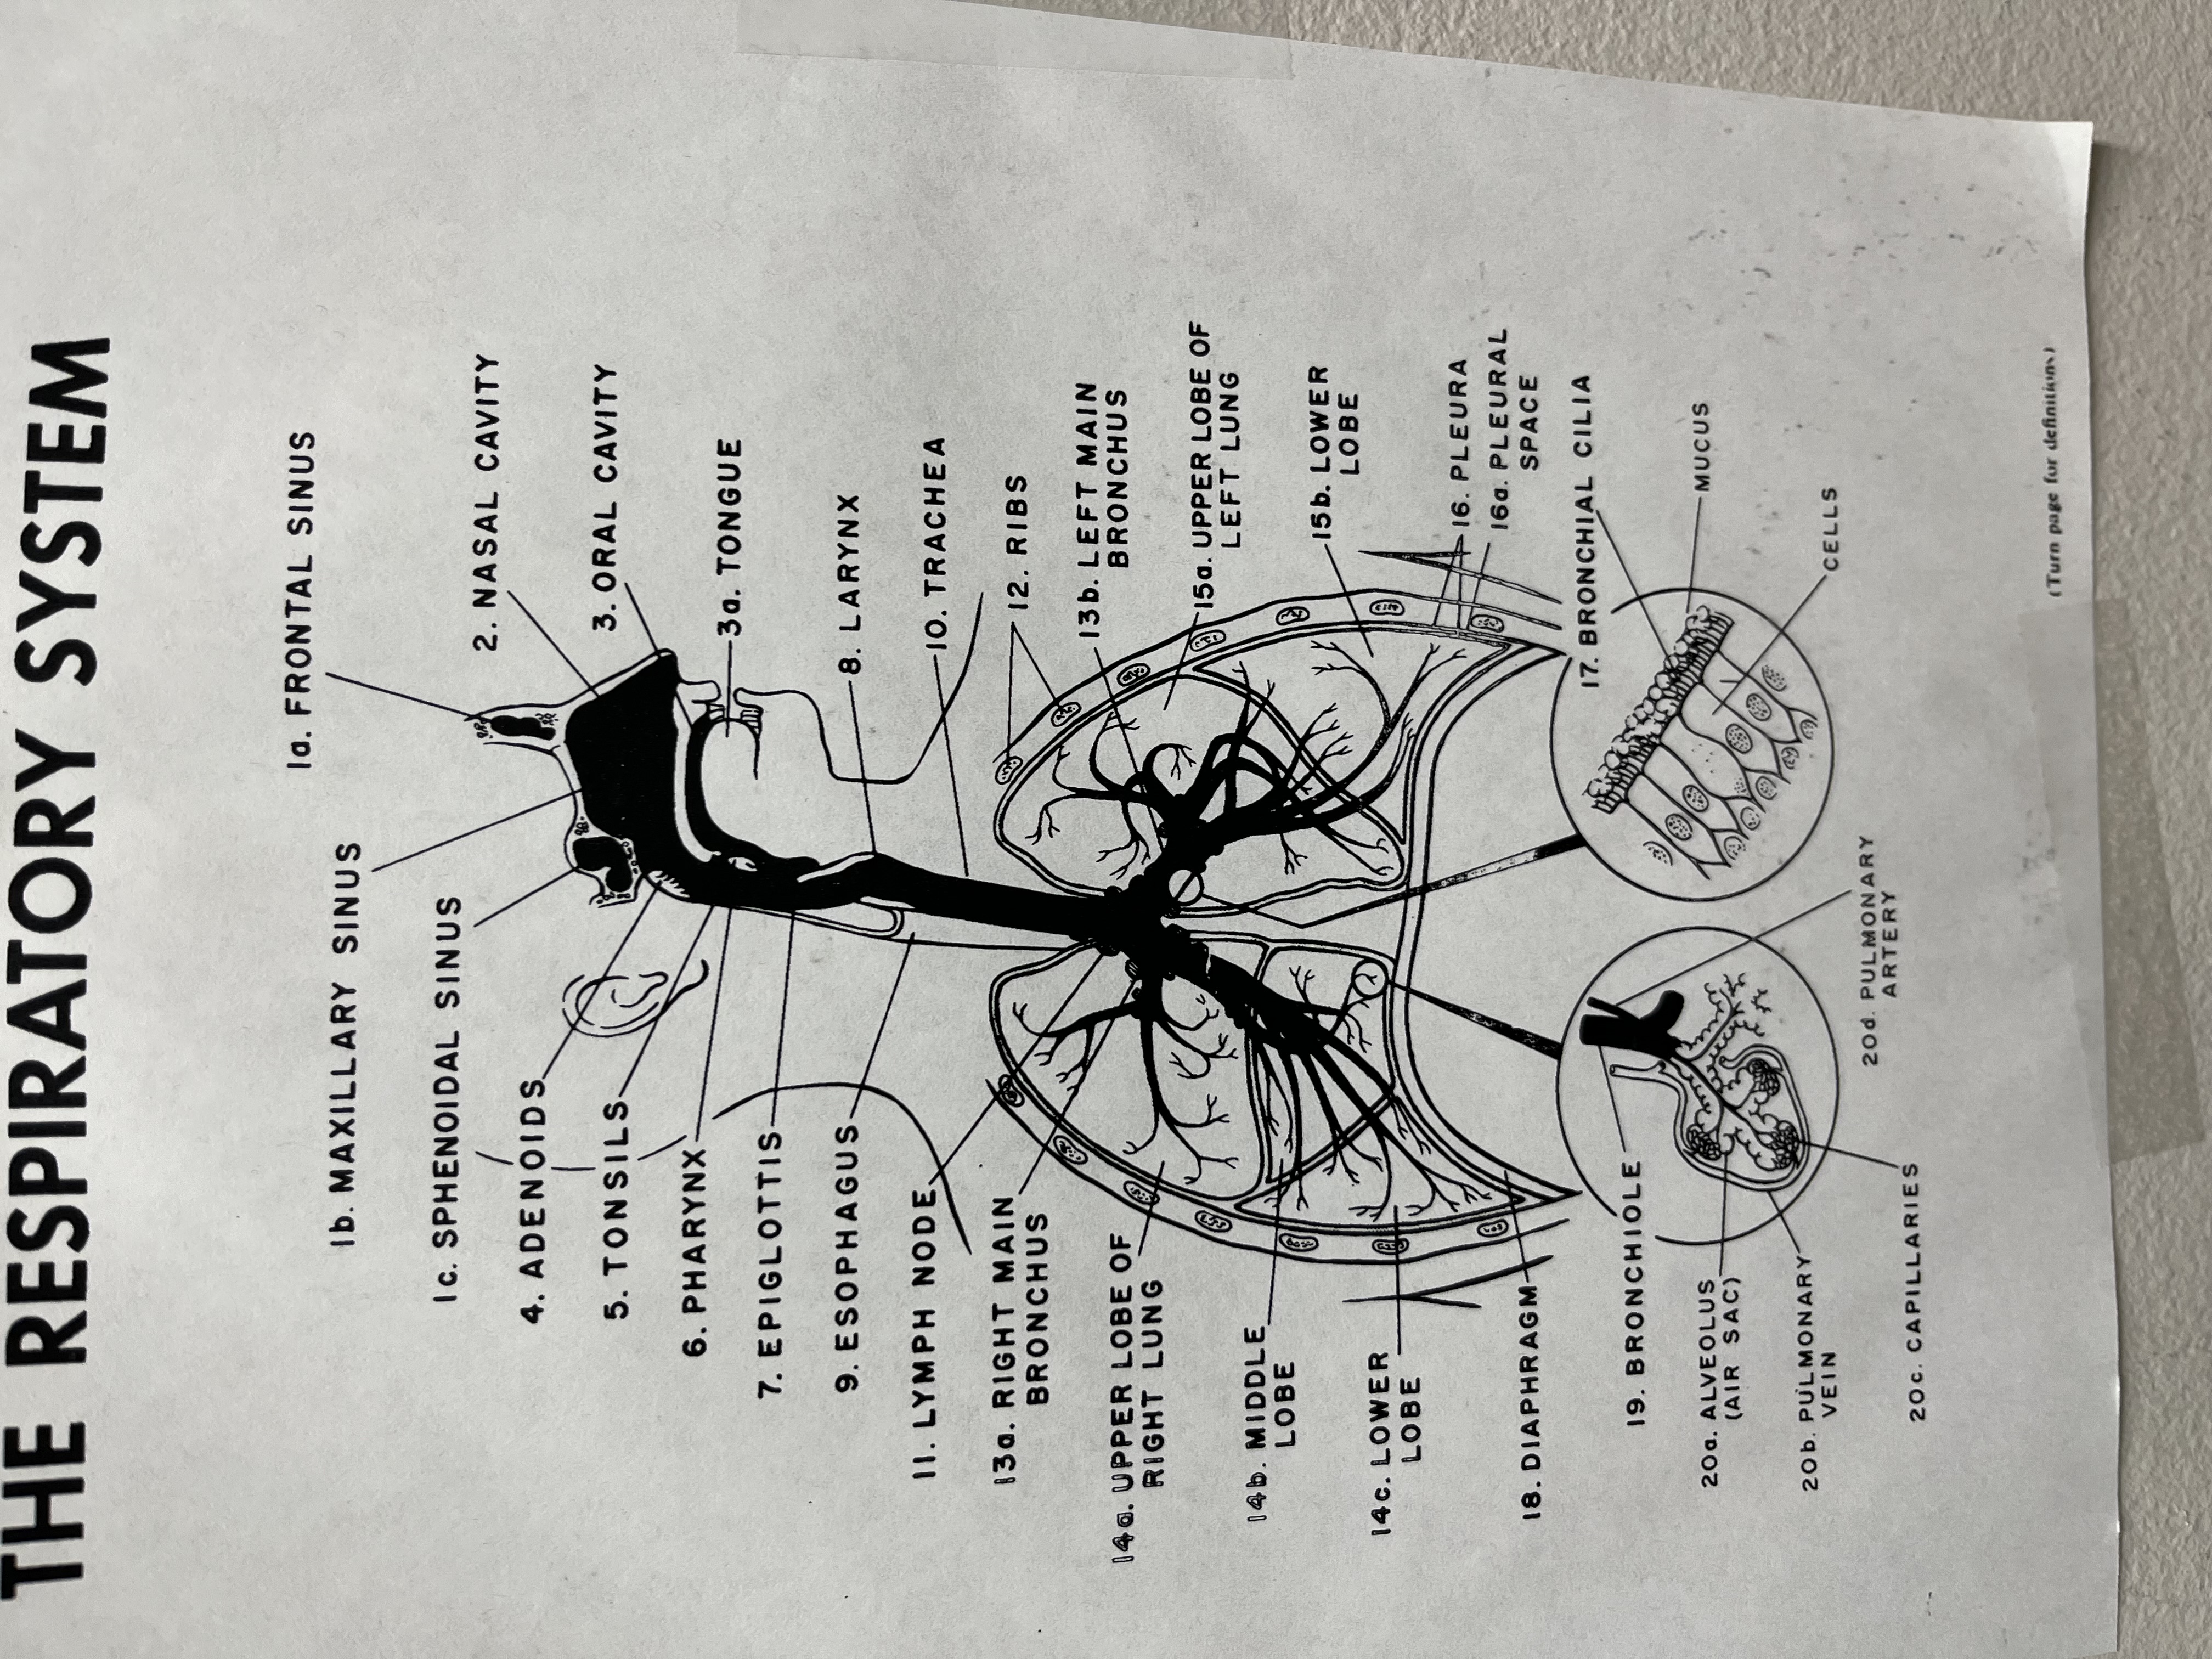 THE RESPIRATORY SYSTEM
1a. FRONTAL SINUS
1b. MAXILLARY SINUS
1c. SPHENOIDAL SINUS
2. NASAL CAVITY
3. ORAL CAVITY
3a. TONGUE
4. ADENOIDS
5. TONSILS
6. PHARYNX
7. EPIGLOTTIS
8. LARYNX
9. ESOPHAGUS
10. TRACHEA
11. LYMPH NODE
12. RIBS
13a. RIGHT MAIN
BRONCHUS
13b. LEFT MAIN
BRONCHUS
14a. UPPER LOBE OF
RIGHT LUNG
14b. MIDDLE
LOBE
14c. LOWER
LOBE
15a. UPPER LOBE OF
LEFT LUNG
15b. LOWER
LOBE
16. PLEURA
16a. PLEURAL
SPACE
17. BRONCHIAL CILIA
MUCUS
CELLS
18. DIAPHRAGM
19. BRONCHIOLE
20a. ALVEOLUS
(AIR SAC)
20b. PULMONARY
VEIN
20c. CAPILLARIES
20d. PULMONARY
ARTERY
(Turn page for definitions)